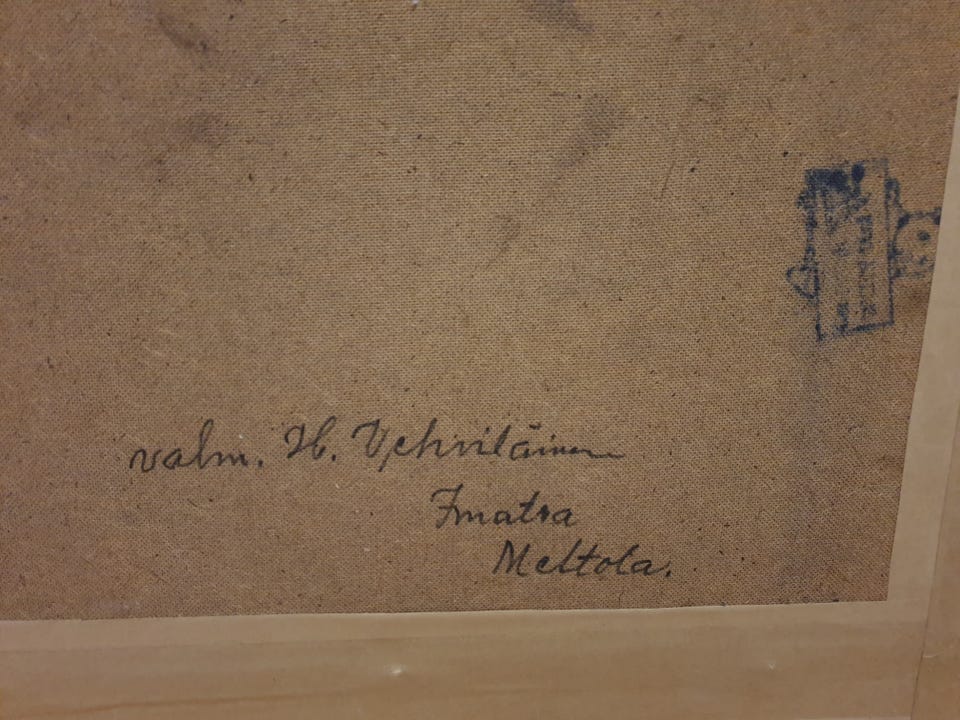 valm. H. Vehviläinen
Imatra
Meltola.